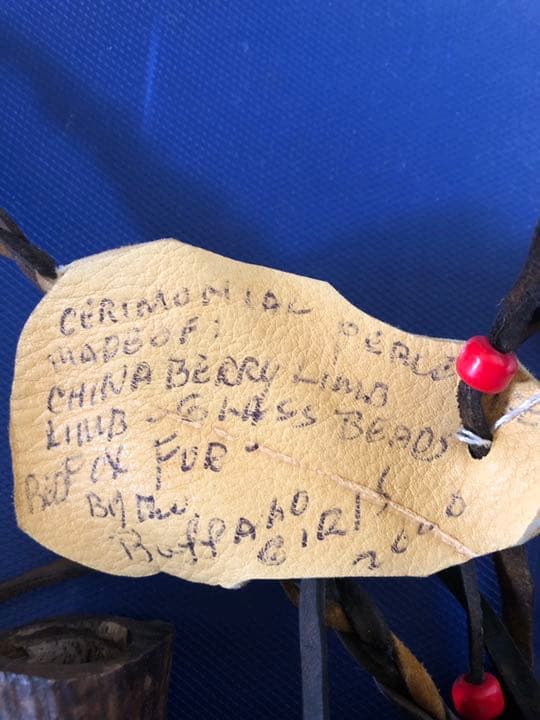 CERIMONIAL
MADE OF:
CHINA BERRY LIMB
LIMB - GLASS BEADS
FUR
By the
BuffALO GIRl